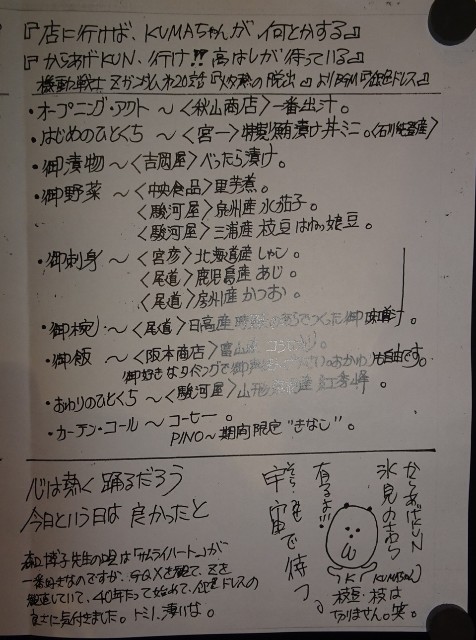 『店に行けば、KUMAちゃんが何とかする』
『からあげKUN、行け!!高はしが待っている』
機動戦士Zガンダム 第20話『灼熱の脱出』よりBGM『銀色ドレス』
・オープニング・アクト〜〈秋山商店〉一番出汁。
・はじめのひとくち〜〈宮一〉特製鮪漬け丼ミニ。
・御漬物〜〈吉岡屋〉べったら漬け。
・御野菜〜〈中央食品〉里芋煮。
〈駿河屋〉泉州産 水茄子。
〈駿河屋〉三浦産 枝豆 はねっ娘豆。
・御刺身〜〈宮彦〉北海道産 しゃこ。
〈尾道〉鹿児島産 あじ。
〈尾道〉房州産 かつお。
・御椀〜〈尾道〉日高産 つくった御味噌汁。
・御飯〜〈阪本商店〉富山産 コシヒカリ。
御好きなタイミングで御声 さい。おかわりも自由です。
・おわりのひとくち〜〈駿河屋〉山形 産 紅秀峰。
・カーテン・コール〜コーヒー。
PINO〜期間限定“きなこ”。
心は熱く 踊るだろう
今日という日は 良かったと
森口博子先生の唄は『サムライハート』が
一番好きなのですが、GQXを観て、Zを
復習していて、40年たって始めて、銀色ドレスの
良さに気付きました。トミノ、凄いな。
からあげKUN
氷見のきわら
有るよ!!!
宇宙で待つ。
そら
(KUMAちゃん)
枝豆・枝は
ありません。笑。